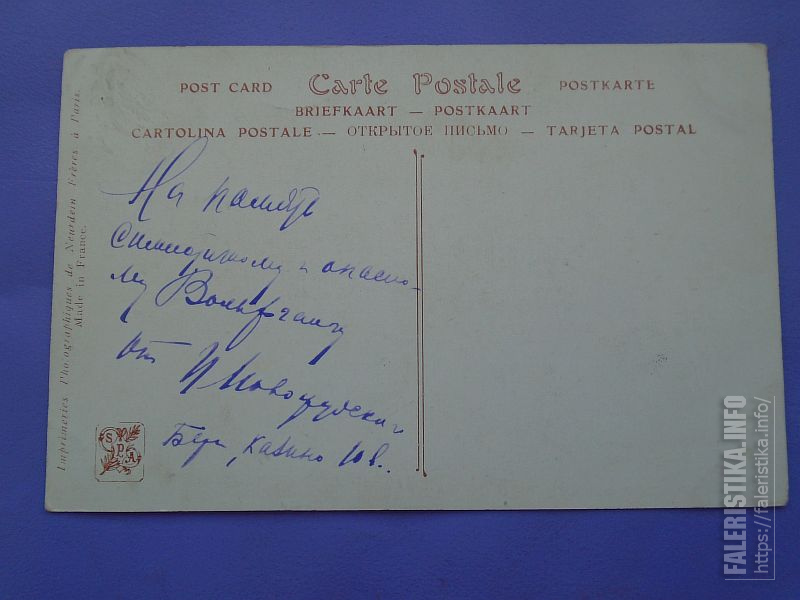 POST CARD Carte Postale POSTKARTE
BRIEFKAART — POSTKAART
CARTOLINA POSTALE — ОТКРЫТОЕ ПИСЬМО — TARJETA POSTAL
Imprimeries Photographiques de Neurdein Frères à Paris.
Made in France.
На память
Симпатичному и опасно-
му Вольфгангу
от
Берн, казино
SPA
FALERISTIKA.INFO
https://faleristika.info/